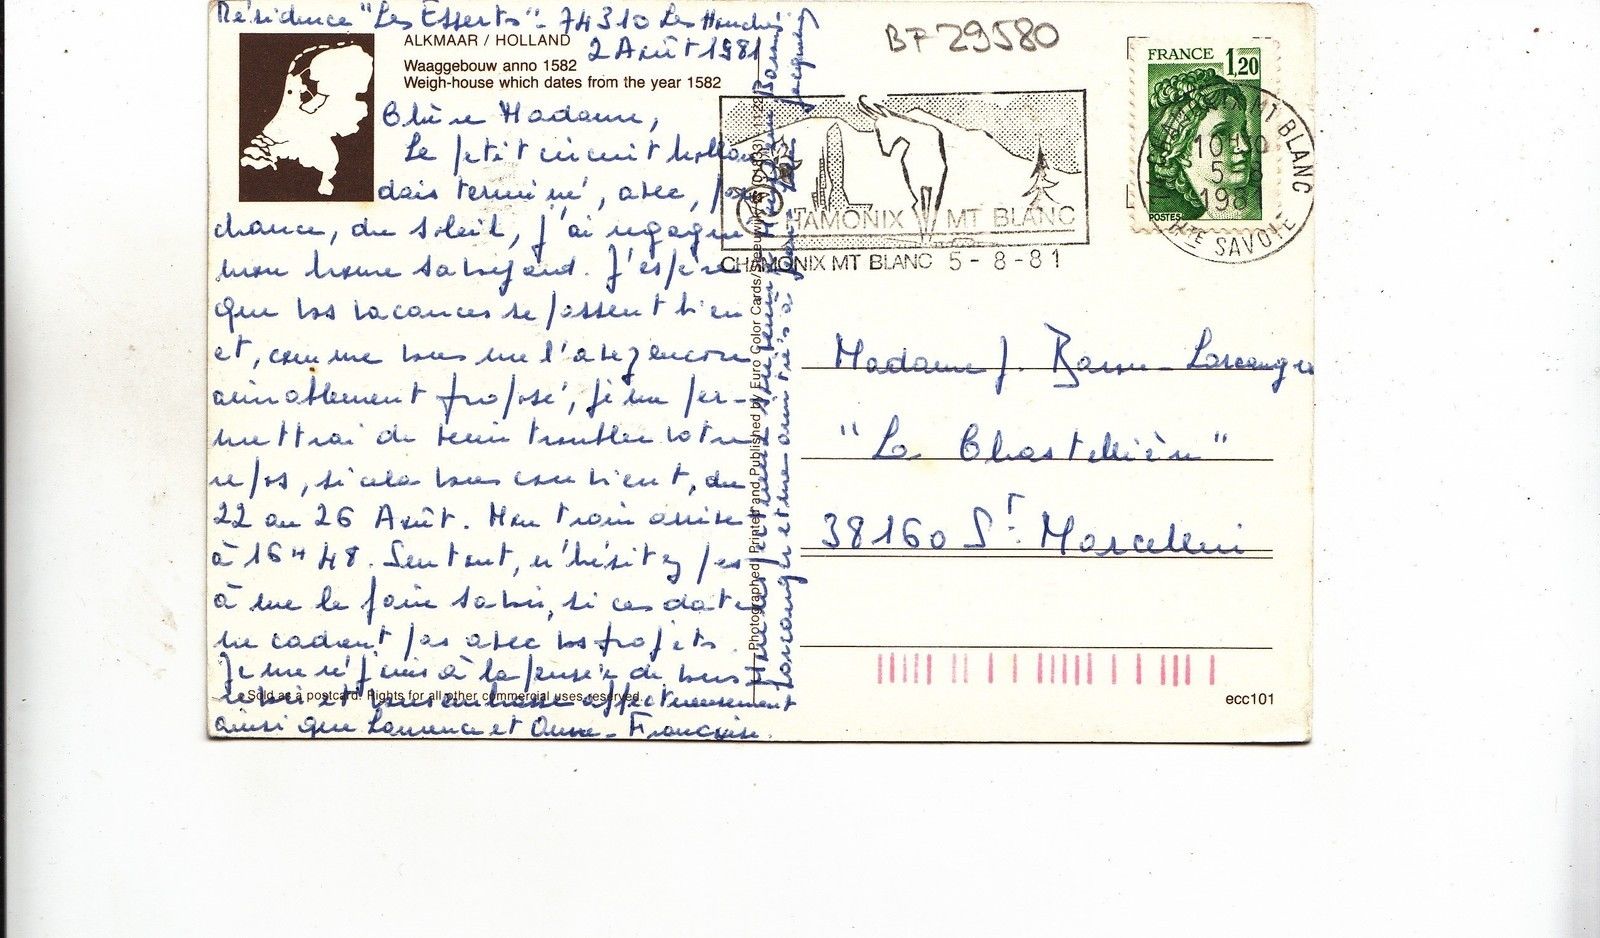 Résidence "Les Esserts" - 74310 Les Houches
2 Août 1981
ALKMAAR / HOLLAND
Waaggebouw anno 1582
Weigh-house which dates from the year 1582
Chère Madame,
Le petit circuit hollan
dais terminé, avec, par
chance, du soleil, j'ai regagné
mon home savoyard. J'espère
que vos vacances se passent bien
et, comme vous me l'avez encore
aimablement proposé, je me per-
mettrai de venir troubler votre
repos, si cela vous convient, du
22 au 26 Août. Mon train arrive
à 16H48. Surtout, n'hésitez pas
à me le faire savoir, si ces dates
ne cadrent pas avec vos projets.
Je me réjouis à la pensée de vous
revoir et vous embrasse affectueusement
ainsi que Laurence et Anne-Françoise.
Sold as a postcard. Rights for all other commercial uses reserved.
Photographed, Printed and Published by Euro Color Cards/
BF 29580
FRANCE 1,20
POSTES
CHAMONIX MT BLANC
10
5
198
HTE SAVOIE
CHAMONIX MT BLANC
CHAMONIX MT BLANC 5-8-81
Madame J. -
"La Chastellière"
38160 St. Marcellin
ecc101